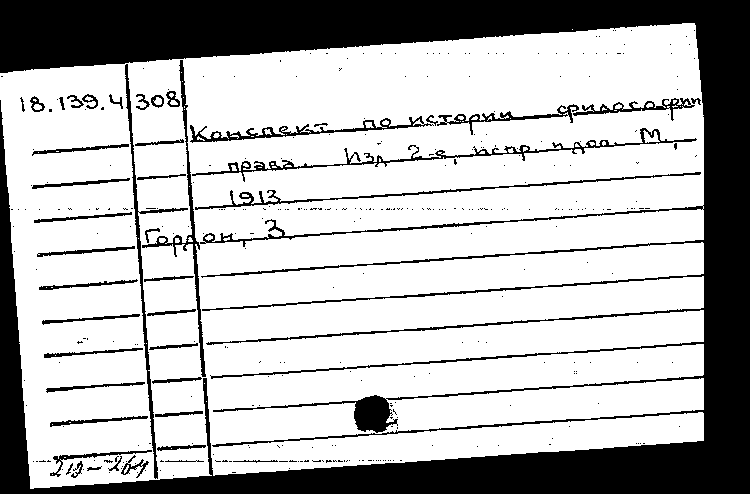 18.139.4 308
Конспект по истории философии
права. Изд 2-е, испр. и доп. М.,
1913
Гордон, З.
212-264